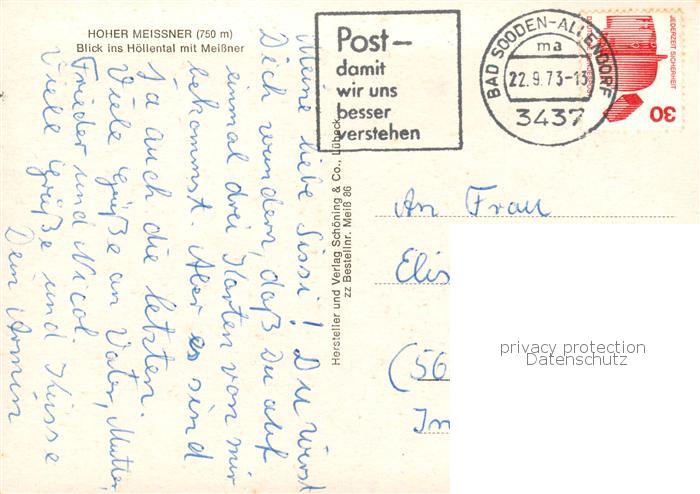 HOHER MEISSNER (750 m)
Blick ins Höllental mit Meißner
Meine liebe Sissi! Du wirst
Dich wundern, daß Du auf
einmal drei Karten von mir
bekommst. Aber es sind
ja auch die letzten.
Viele Grüße an Vater, Mutter,
Frieder und Nicol.
Viele Grüße und Küsse
Dein Armin
Hersteller und Verlag Schöning & Co., Lübeck
zz Bestellnr. Meiß 86
Post –
damit
wir uns
besser
verstehen
BAD SOODEN-ALLENDORF
ma
22.9.73-13
3437
JEDERZEIT SICHERHEIT
30
An Frau
Elis
(56
Im
privacy protection
Datenschutz